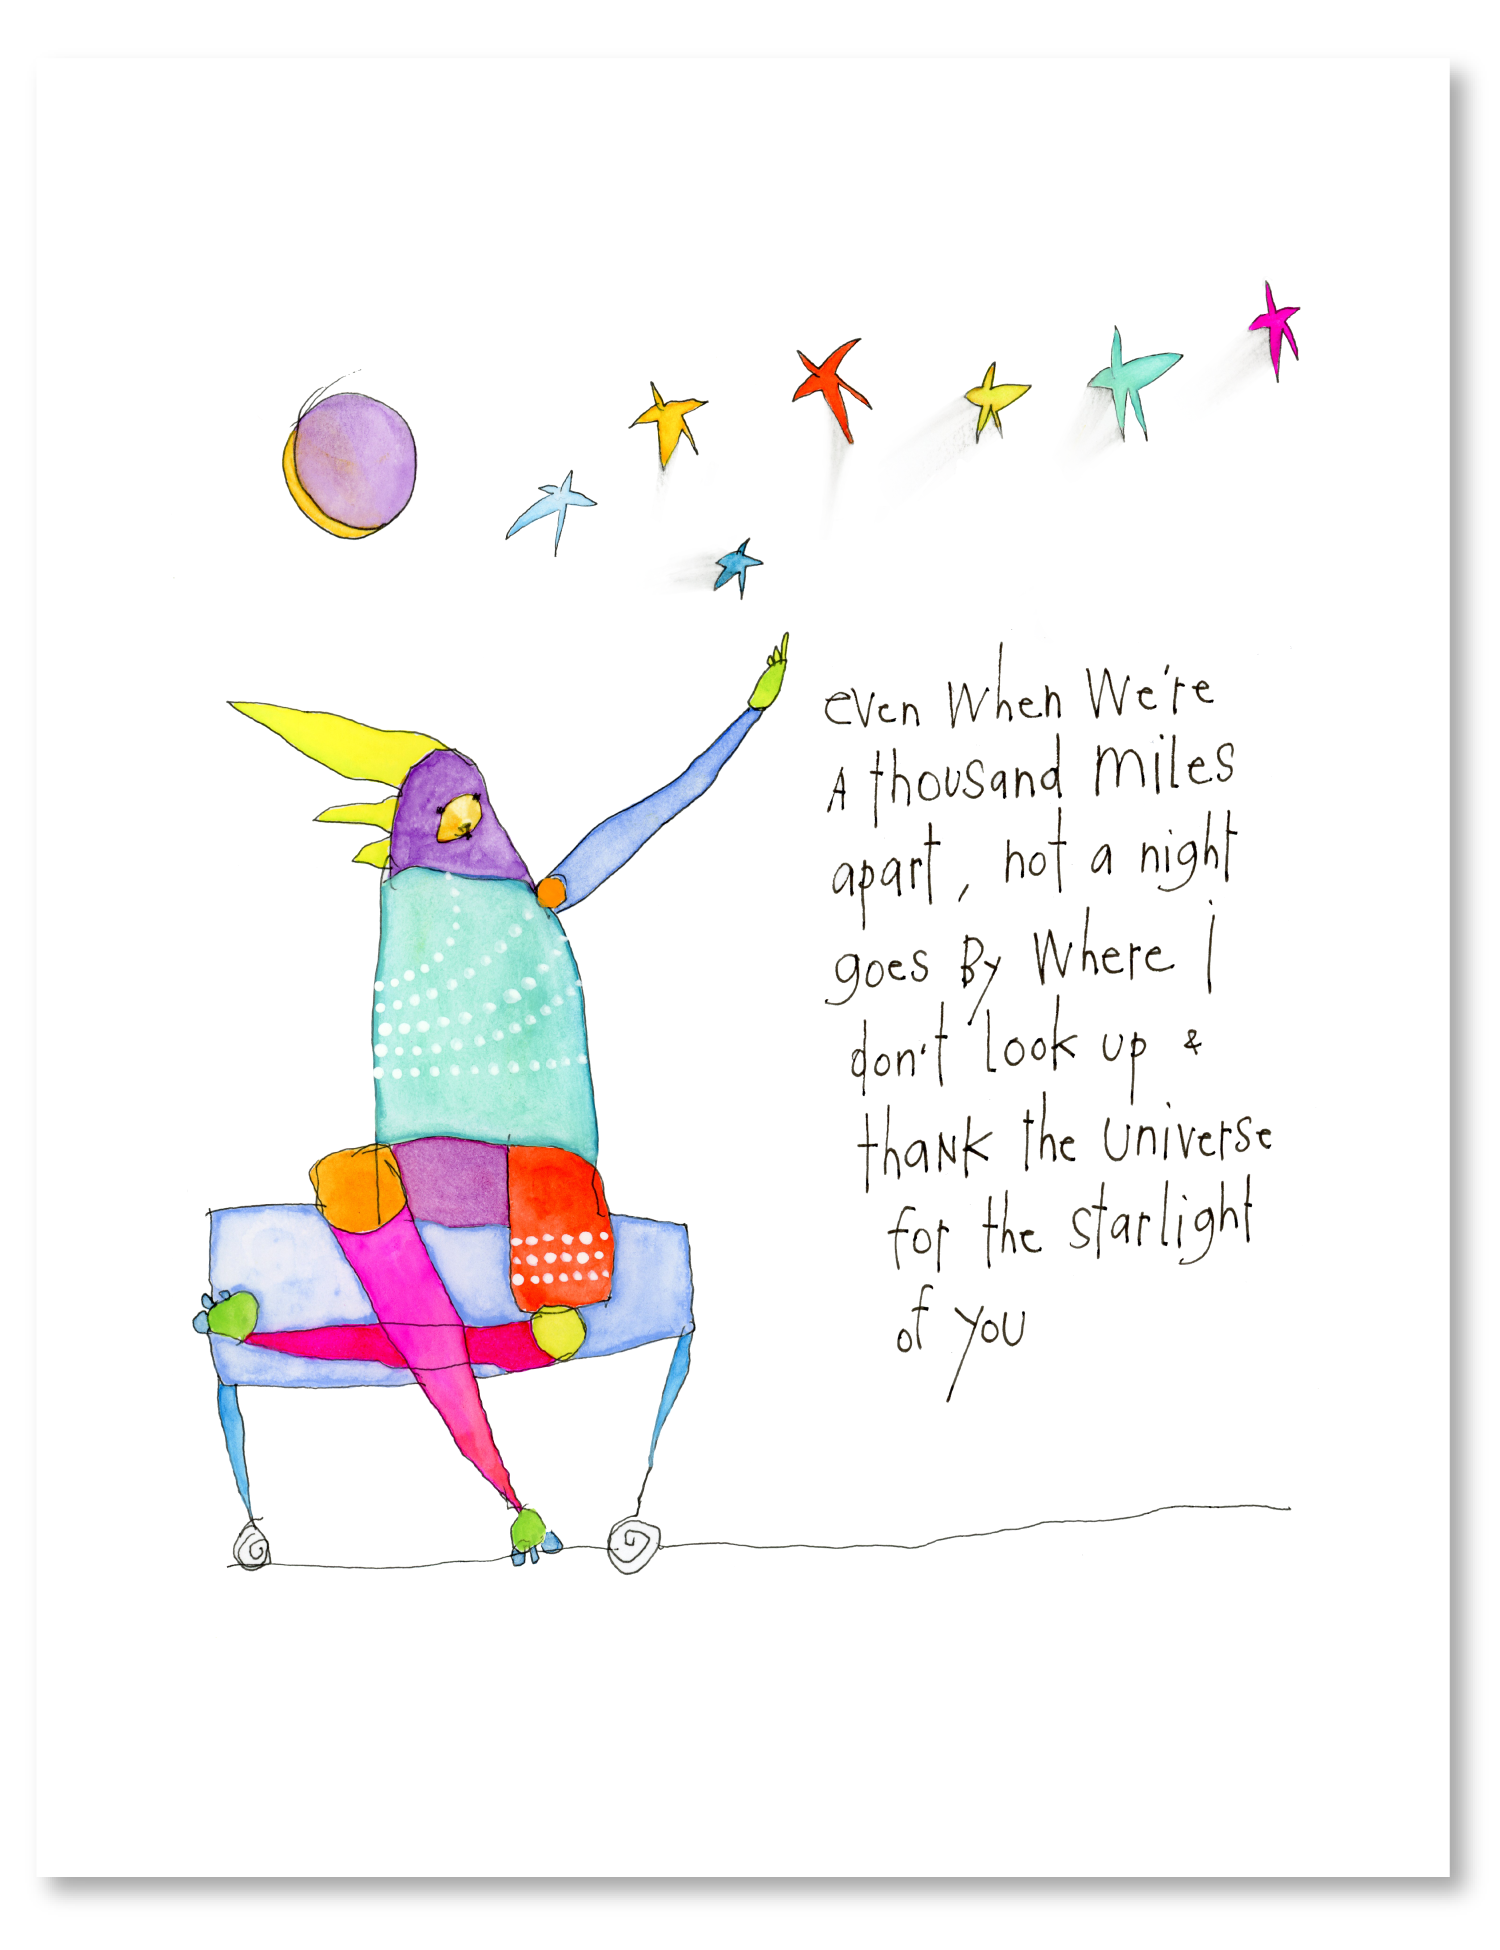 even when we're
A thousand miles
apart, not a night
goes By where i
don't look up &
thank the universe
for the starlight
of you